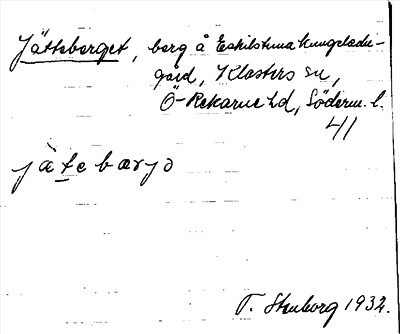 Jätteberget, berg å Eskilstuna kungsladu-
gård, Klosters sn,
Ö-Rekarne hd, Söderm. l.
41
jätebærjə
T. Stenborg 1932.